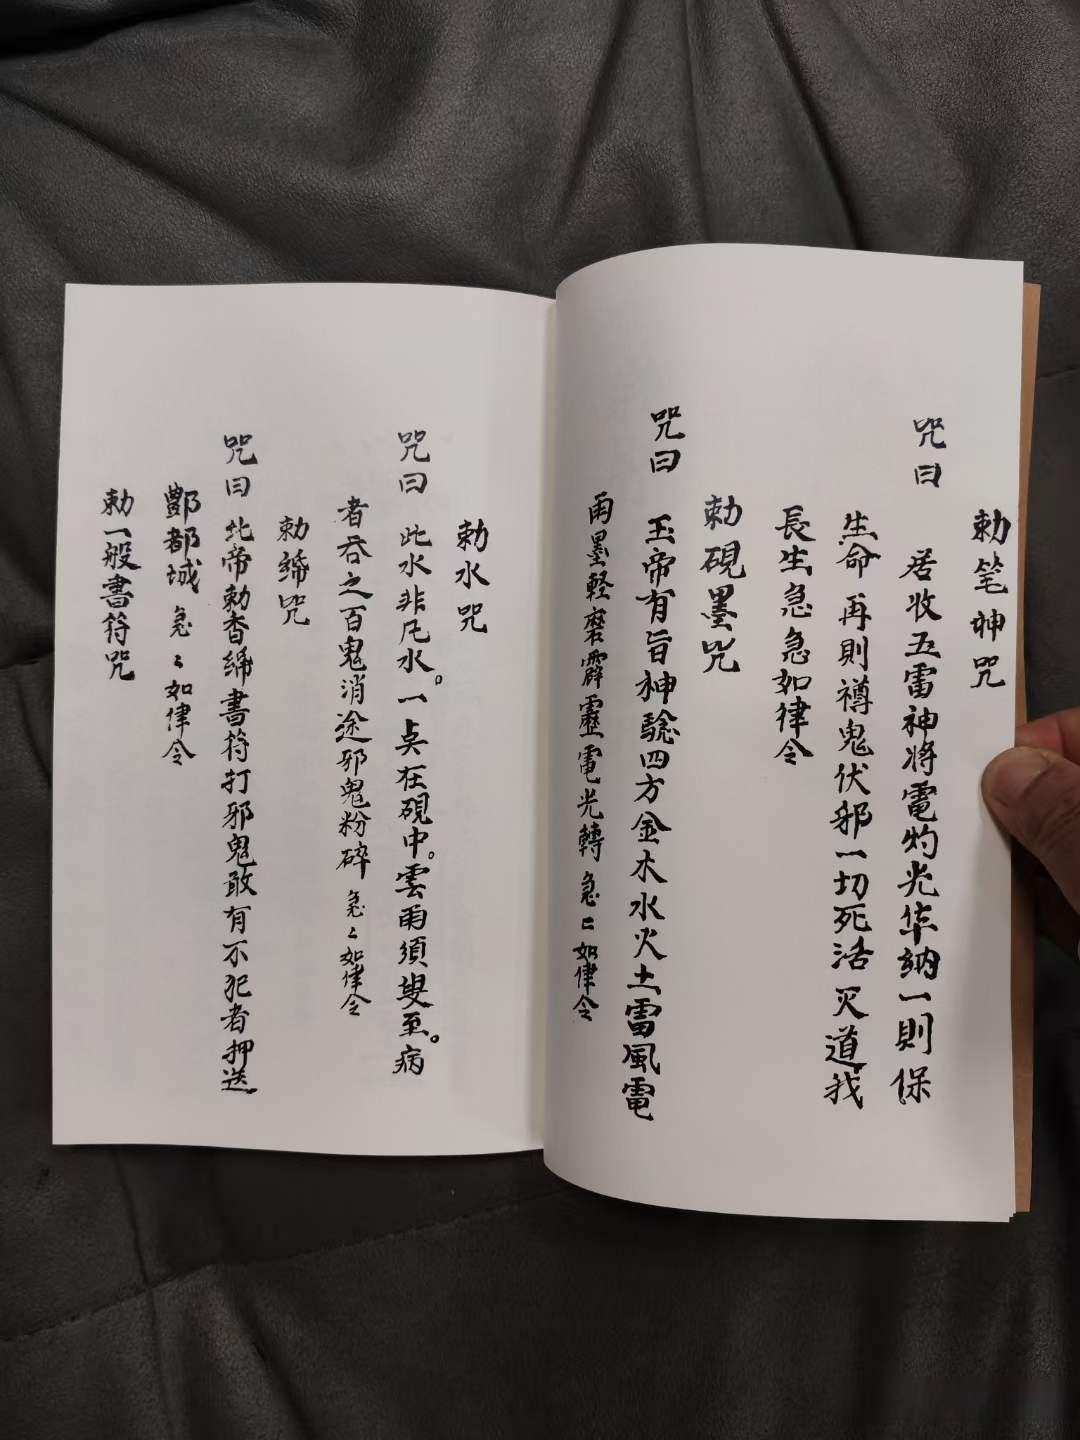 勅笔神咒
咒曰 居收五雷神将電灼光华納一則保
生命再則禣鬼伏邪一切死活灭道我
長生急急如律令
勅硯墨咒
咒曰 玉帝有旨神騐四方金木水火土雷風電
雨墨軽磨霹靂電光轉急二如律令
勅水咒
咒曰 此水非凡水。一点在硯中。雲雨須叟至。病
者吞之百鬼消途邪鬼粉碎急々如律令
勅締咒
咒曰 北帝勅香締書符打邪鬼敢有不犯者押送
酆都城急々如律令
勅一般書符咒